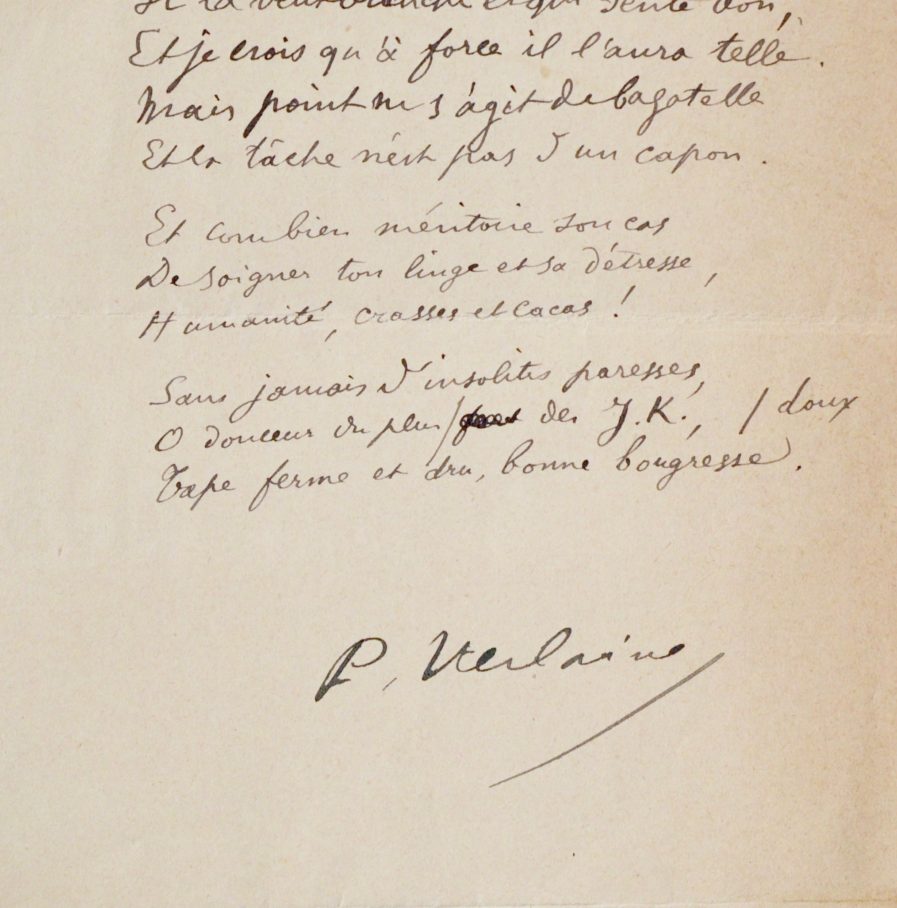 Il la veut blanche et qui sente bon,
Et je crois qu'à force il l'aura telle.
Mais point ne s'agit de bagatelle
Et la tâche n'est pas d'un capon.
Et combien méritoire son cas
De soigner ton linge et sa détresse,
Humanité, crasses et cacas !
Sans jamais d'insolites paresses,
O douceur du plus / des J.K., / doux
Tape ferme et dru, bonne bougresse.
P. Verlaine